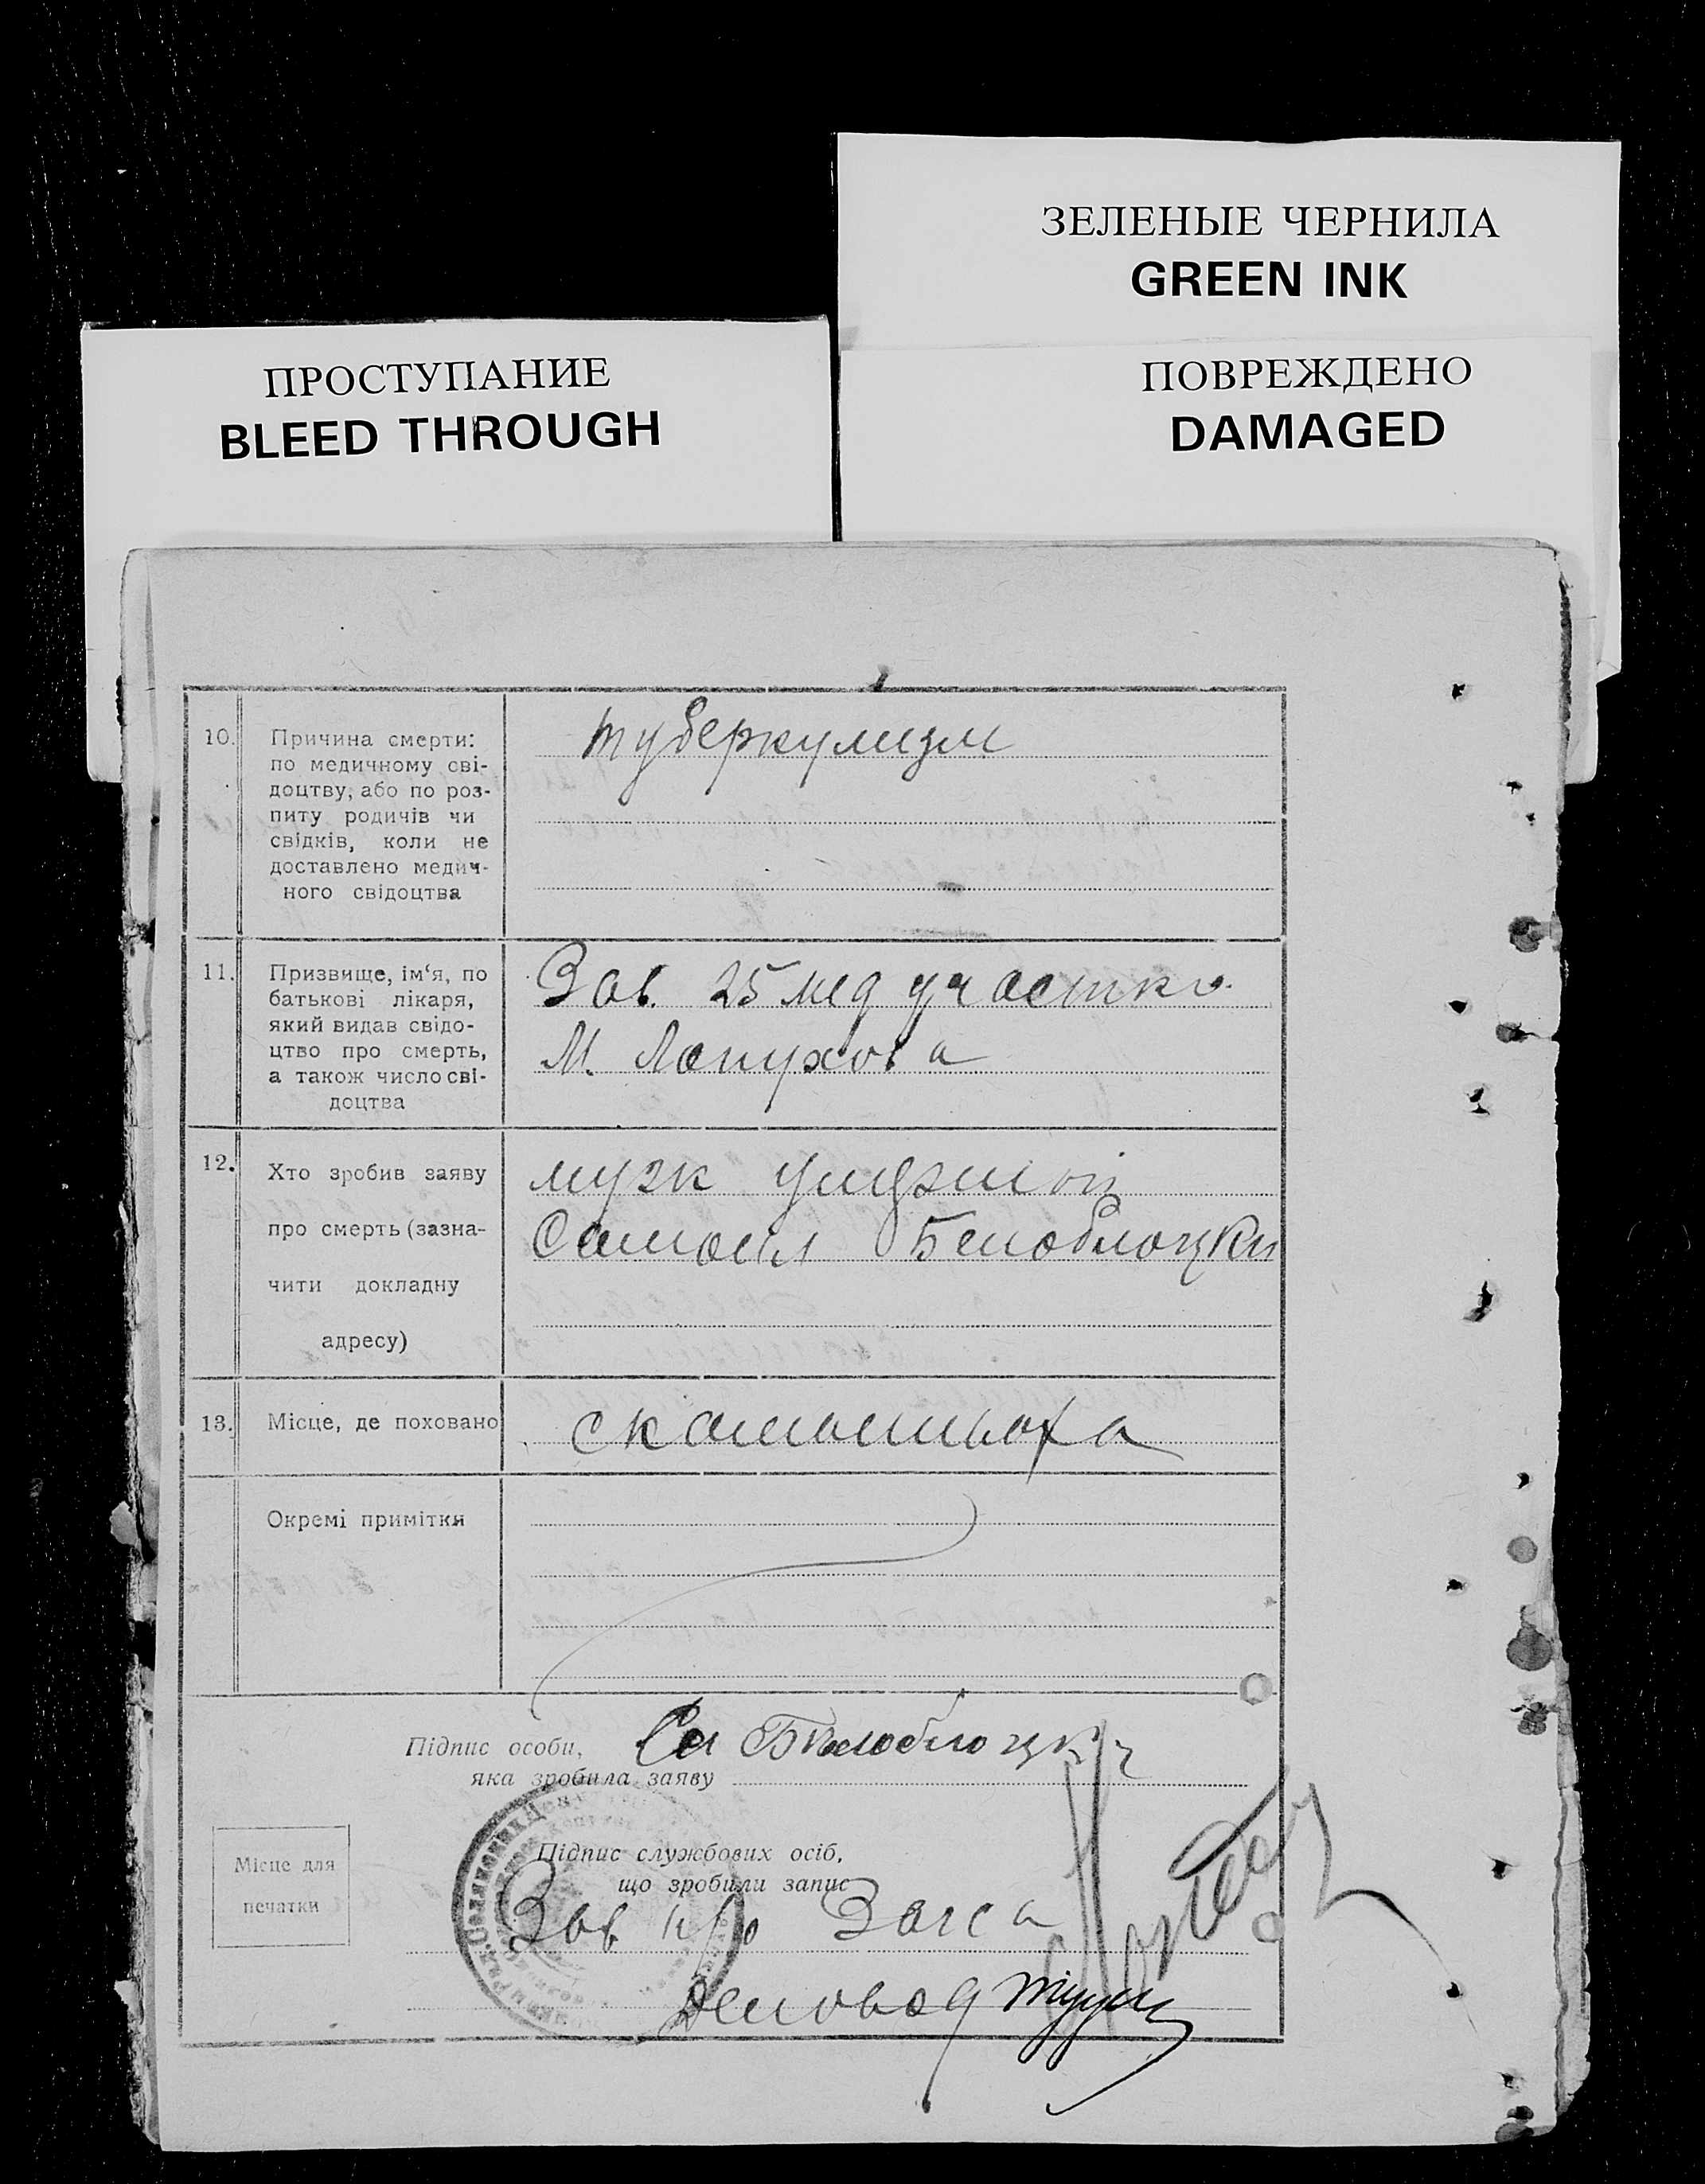 ЗЕЛЕНЫЕ ЧЕРНИЛА
GREEN INK
ПРОСТУПАНИЕ
BLEED THROUGH
ПОВРЕЖДЕНО
DAMAGED
10. Причина смерти:
по медичному сві-
доцтву, або по роз-
питу родичів чи
свідків, коли не
доставлено медич-
ного свідоцтва
туберкулизм
11. Призвище, ім'я, по
батькові лікаря,
який видав свідо-
цтво про смерть,
а також число сві-
доцтва
Зав. 25 мед участко
М. Лопухова
12. Хто зробив заяву
про смерть (зазна-
чити докладну
адресу)
муж
Самоил Белоблоцки
13. Місце, де поховано
Окремі примітки
Підпис особи,
яка зробила заяву
Са Белоблоцки
Місце для
печатки
Підпис службових осіб,
що зробили запис
Зав Загса
Деловод